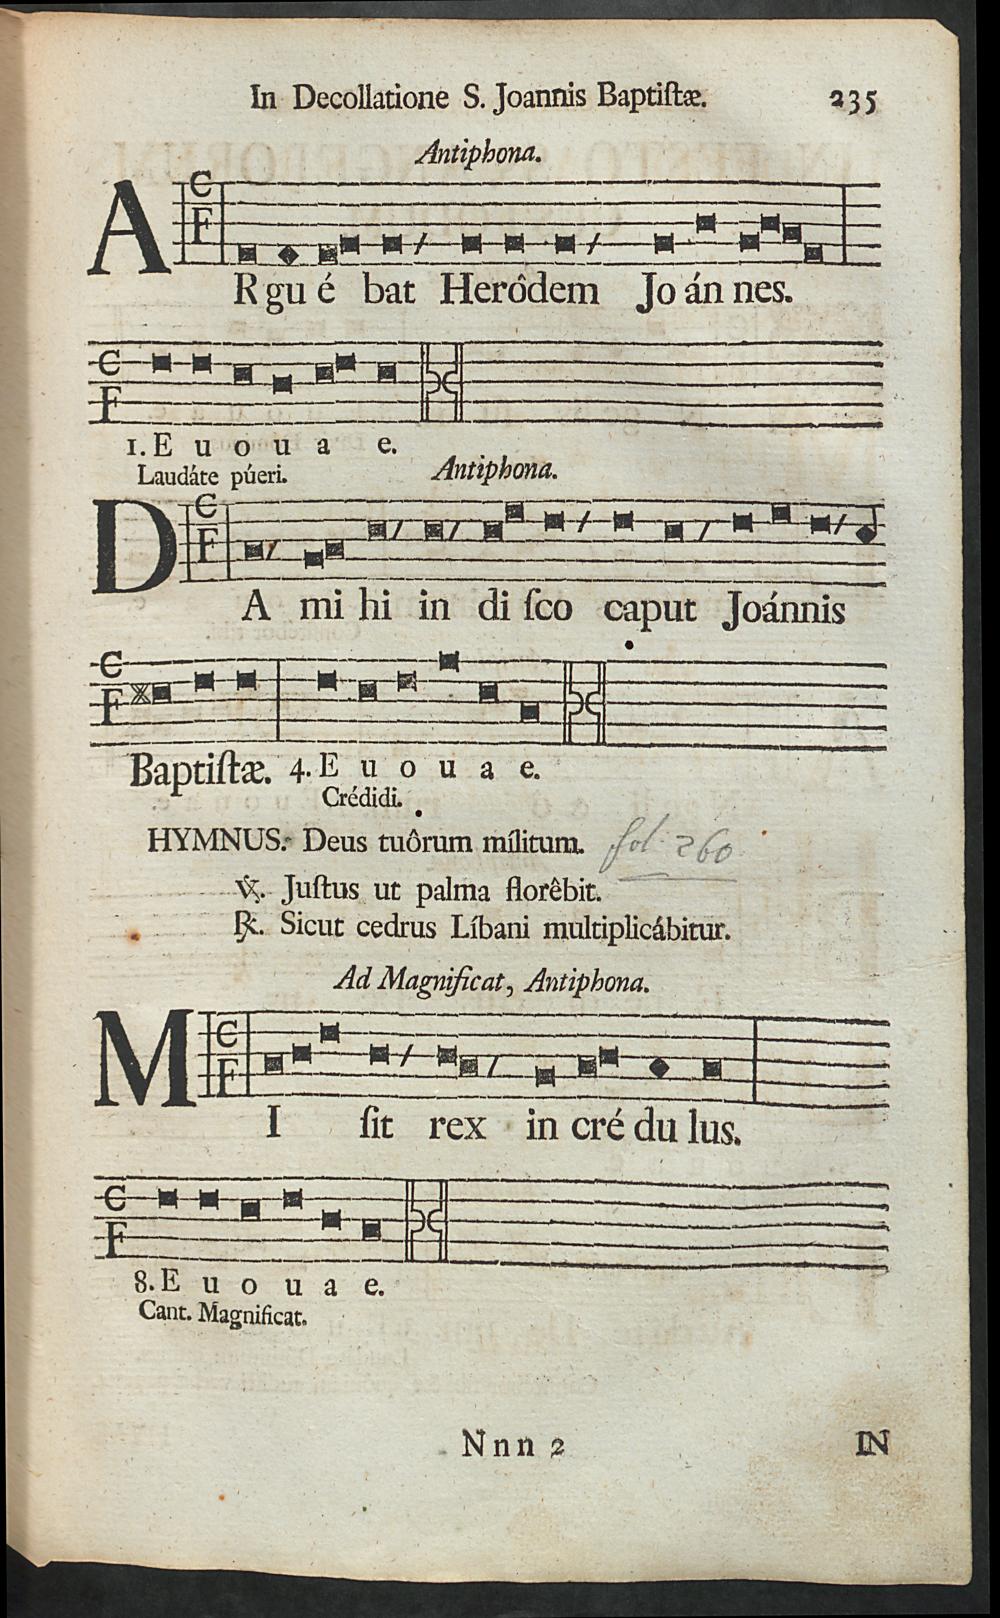 In Decollatione S. Joannis Baptiſtæ. 235
Antiphona.
A
R gu é bat Herôdem Jo án nes.
1. E u o u a e.
Laudáte púeri. Antiphona.
D
A mi hi in di ſco caput Joánnis
Baptiſtæ. 4. E u o u a e.
Crédidi.
HYMNUS. Deus tuôrum mílitum. fol. 260
℣. Juſtus ut palma florêbit.
℟. Sicut cedrus Líbani multiplicábitur.
Ad Magnificat, Antiphona.
M
I ſit rex in cré du lus.
8. E u o u a e.
Cant. Magnificat.
Nnn 2 IN